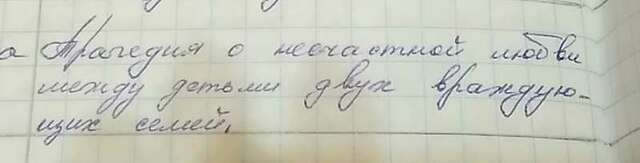 а Трагедия о несчастной любви
между детьми двух враждую-
щих семей.